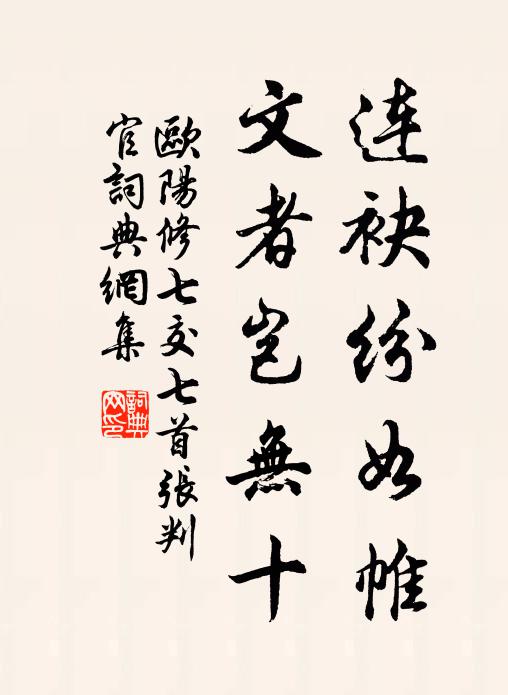 連袂紛如帷
文者豈無十
歐陽修七交七首張判
官詞典網集
詞典
网印